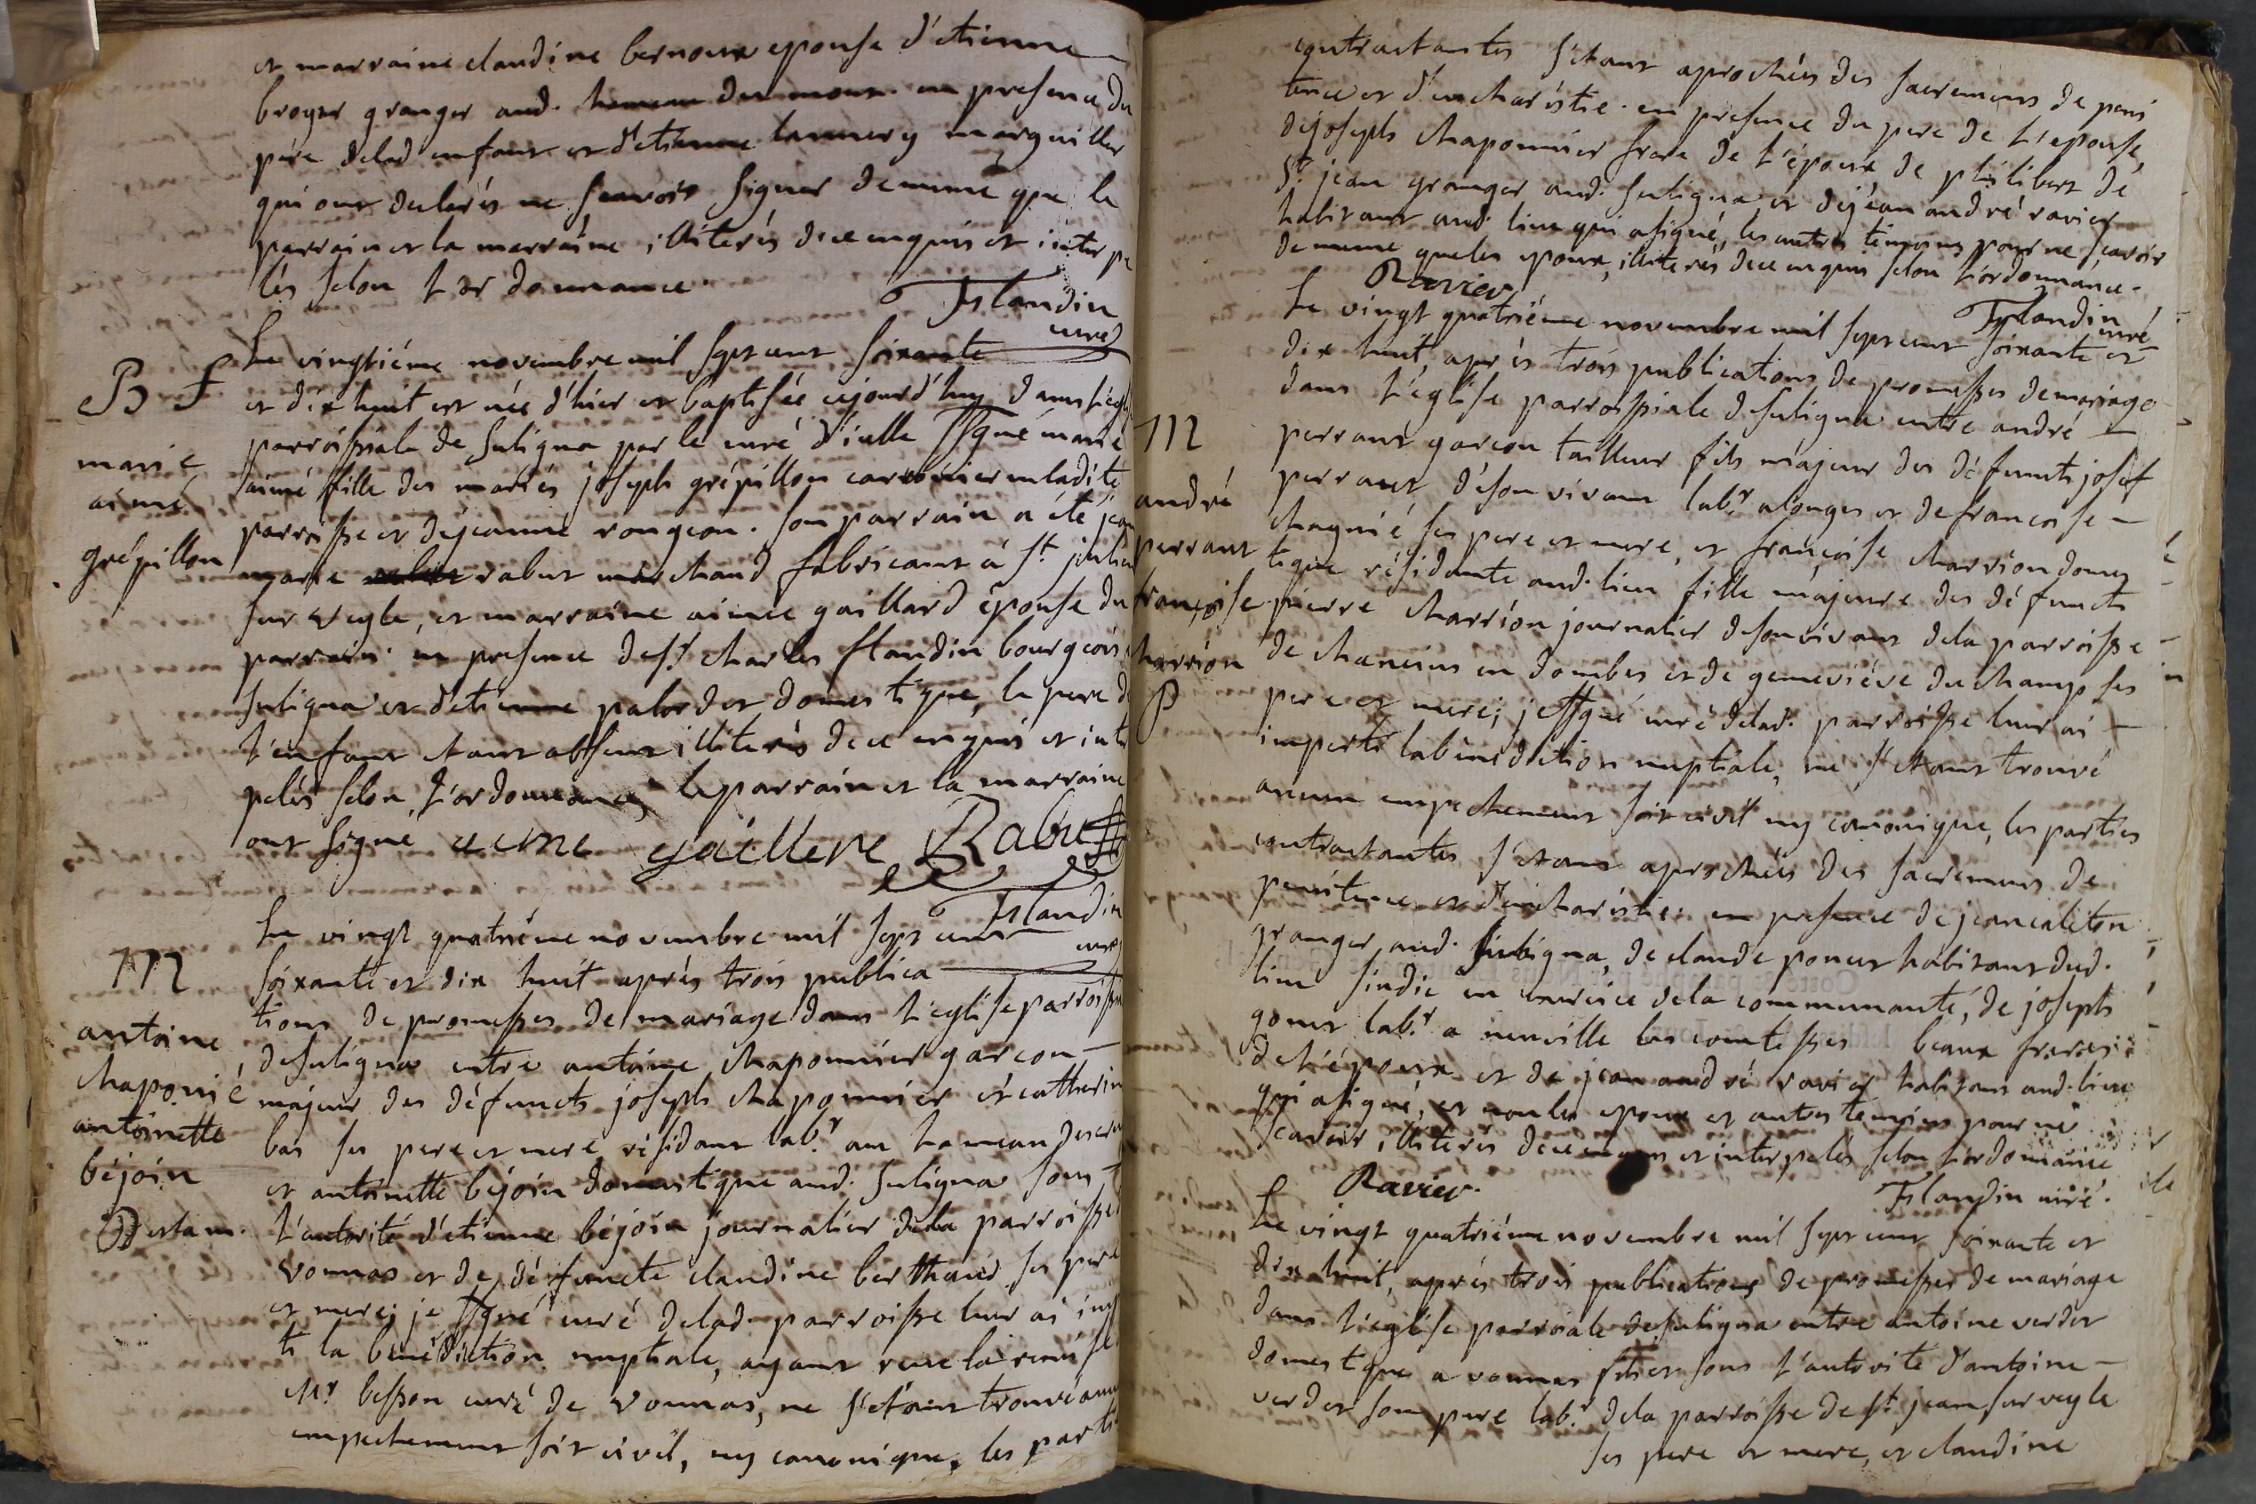 et marraine claudine bernoux epouse d'etienne
broyer granger aud. hameau du mour en presence du
père delad enfant et d'etienne lannery marguiller
qui ont declarés ne scavoir signer de meme que le
parrain et la marraine illiterés de ce enquis et interpe
lés selon l'ordonnance.
Flandin
curé
B f
marie
aimé
grépillon
Le vingtiéme novembre mil sept cent soixante
et dix huit est née d'hier et baptisée cejourd'huy dans l'egli
parroissiale de suligna par le curé d'icelle ssgné marie
aimé fille des mariés joseph grépillon en ladite
parroisse et de jeanne rongeon. son parrain a été jean
marie rabut marchand fabricant à st. julien
sur veyle, et marraine aimée gaillard épouse du
parrain. en presence de sr. charles flandin bourgeois
suligna et d'etienne palordet domestique, le pere de
l'enfant etant absent illiterés de ce enquis et inter
pelés selon l'ordonnance, le parrain et la marraine
ont signé aime gaillere Rabut
Flandin
curé
M
antoine
chaponié
antoinette
béjoin
Le vingt quatriéme novembre mil sept cent
soixante et dix huit après trois publica
tions de promesses de mariage dans l'eglise parroissi
de suligna entre antoine chaponnier garcon
majeur des défuncts joseph chaponnier et catherin
bas ses pere et mere résidant labr. au hameau
et antoinette béjoin domestique aud. suligna sous
l'autorité d'etienne béjoin journalier dela parroisse
vonnas et de défuncte claudine berthaud ses pere
et mere; je ssgné curé delad. parroisse leur ai imp
ti la bénédiction nuptiale, ayant reçu la remise
Mr. besson curé de vonnas, ne s'etant trouvé aucun
empechement soit civil, ny canonique, les parti
contractantes s'etant aprochées des sacremens de peni
tence et d'eucharistie. en presence du pere de l'epouse,
de joseph chaponnier frere de l'époux de philibert de
st. jean granger aud. suligna et de jean andré ravier
habitant aud. lieu qui a signé, les autres témoins pour ne scavoir
de meme que les epoux, illiterés de ce enquis selon l'ordonnance.
Ravier
Flandin
curé
M
andré
perraut
françoise
charrion
P
Le vingt quatriéme novembre mil sept cent soixante et
dix huit, après trois publications de promesses de mariage
dans l'église parroissiale de suligna entre andré
perraut garcon tailleur fils majeur des défuncts josef
perraut de son vivant labr. a longes et de francoise
chagnié ses pere et mere, et françoise charrion domes
tique résidante aud. lieu fille majeure des défuncts
pierre charrion journalier de son vivant dela parroisse
de chaneins en dombes et de geneviéve duchamp ses
pere et mere; je ssgné curé delad. parroisse leur ai
imperti la bénédiction nuptiale, ne s'etant trouvé
aucun empechement soit civil ny canonique, les parties
contractantes s'etant aprochées des sacremens de
penitence et d'eucharistie: en presence de jean caleton
granger aud. suligna, de claude poncet habitant dud.
lieu sindic en exercice dela communauté, de joseph
gonet labr. a neuville les comtesses beaux freres
de l'époux et de jean andré ravier habitant aud. lieu
qui a signé, et non les epoux et autres témoins pour ne
scavoir illiterés de ce enquis et interpelés selon l'ordonnance
Ravier.
Flandin curé.
Le vingt quatriéme novembre mil sept cent soixante et
dix huit, après trois publications de promesses de mariage
dans l'eglise parroiale de suligna entre antoine verdet
domestique a vonnas fils et sous l'autorité d'antoine
verdet son pere labr. dela parroisse de st. jean sur veyle
ses pere et mere, et claudine